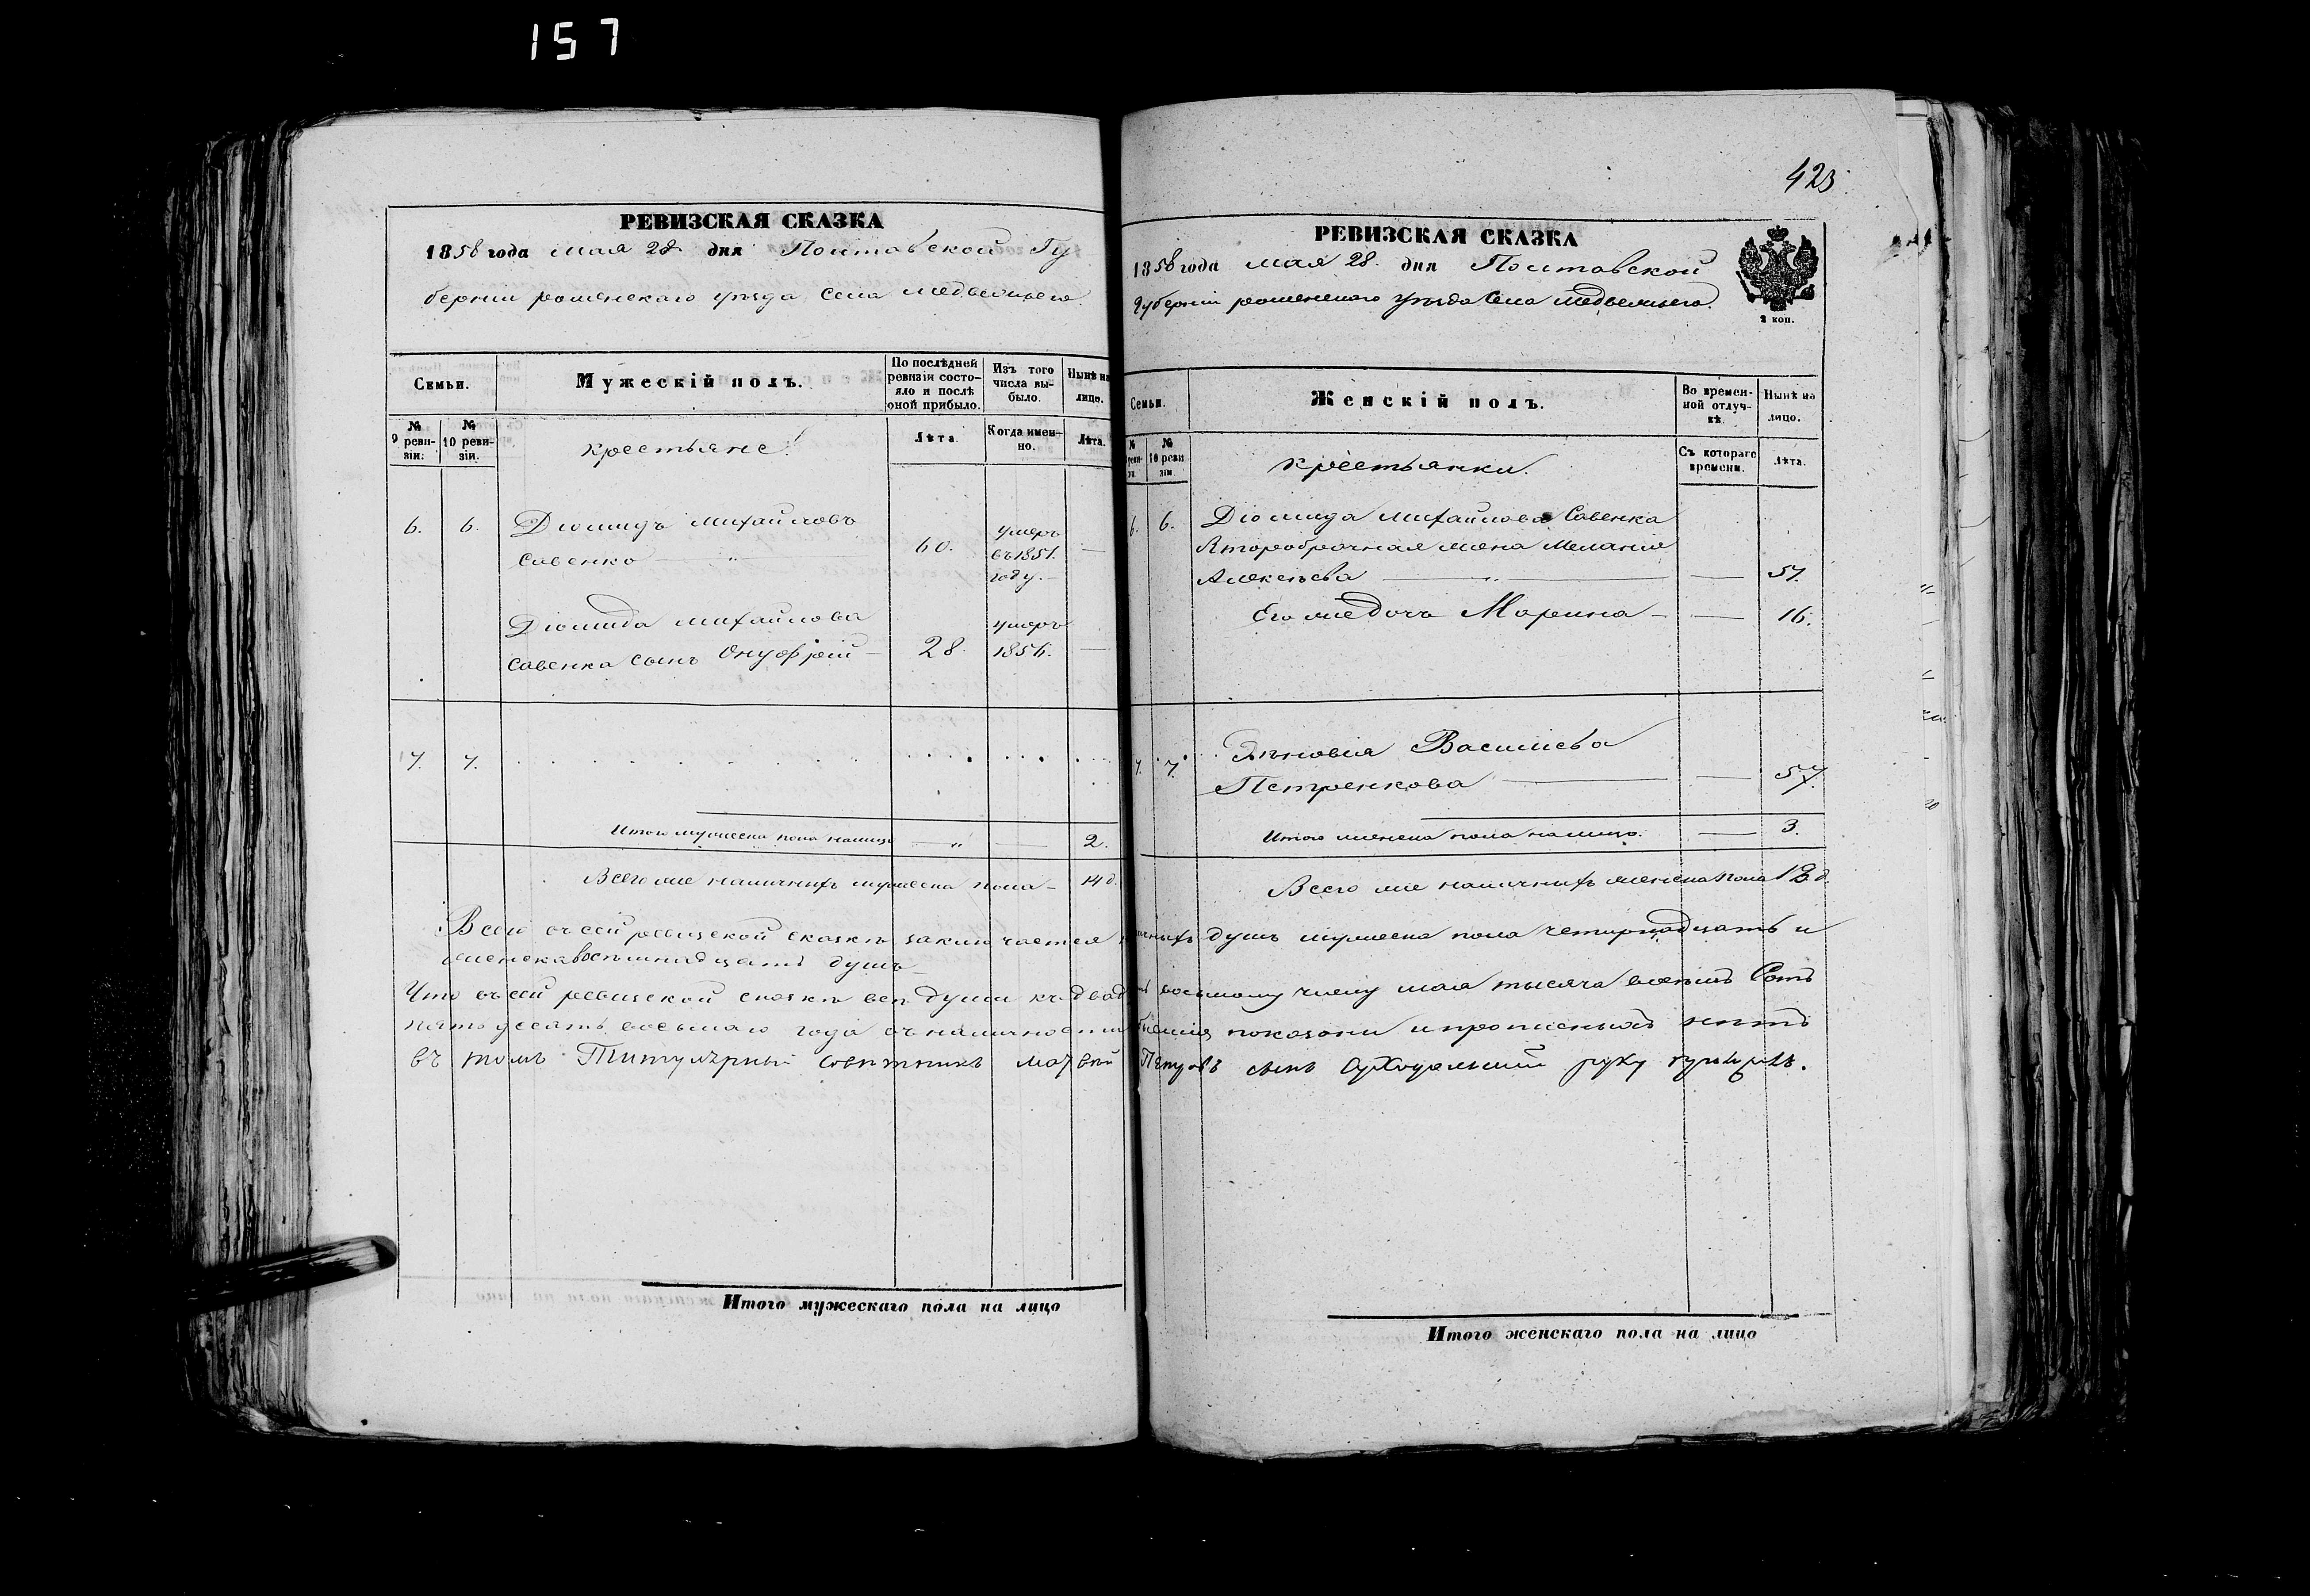 157
423
РЕВИЗСКАЯ СКАЗКА
1858 года мая 28 дня Полтавской Гу
берніи роменскаго уѣзда села Медвежьяго.
Семьи.
Мужескій полъ.
По послѣдней ревизіи состояло и послѣ оной прибыло.
Изъ того числа выбыло.
Нынѣ на лицо.
№ 9 ревизіи.
№ 10 ревизіи.
крестьяне.
Лѣта
Когда именно.
Лѣта.
6. 6. Діомидъ Михайловъ
Савенко — „ — 60. умеръ въ 1851. году. —
Діомида Михайлова
Савенка сынъ Онуфрій — 28. умеръ 1856. —
7. 7.
Итого мужеска пола налицо — „ — 2.
Всего же наличныхъ мужеска пола — 14 д.
РЕВИЗСКАЯ СКАЗКА
1858 года мая 28. дня Полтавской
губерніи роменскаго уѣзда села Медвежьяго.
2 коп.
Семьи.
Женскій полъ.
Во временной отлучкѣ.
Нынѣ на лицо.
№ реви зи
№ 10 реви зіи.
крестьянки.
Съ котораго времени.
Лѣта.
6. 6. Діомида Михайлова Савенка
второобрачная жена Меланія
Алексѣева — „ — — 57.
Его же дочь Марина — — 16.
7. 7. Зѣновія Василіева
Петренкова — — 57.
Итого женска пола налицо. — 3.
Всего же наличныхъ женска пола 18 д.
Всего въ сей ревизской сказкѣ заключается наличныхъ душъ мужеска пола четырнадцать и
женска восѣмнадцать душъ
Что въ сей ревизской сказкѣ всѣ души къ двадцать восьмому числу мая тысяча восемь сотъ
пятьдесятъ восьмаго года въ наличности бывшія показани и прописныхъ нѣтъ
въ томъ Титулярный совѣтникъ Матвей Петровъ сынъ руку
Итого мужескаго пола на лицо
Итого женскаго пола на лицо